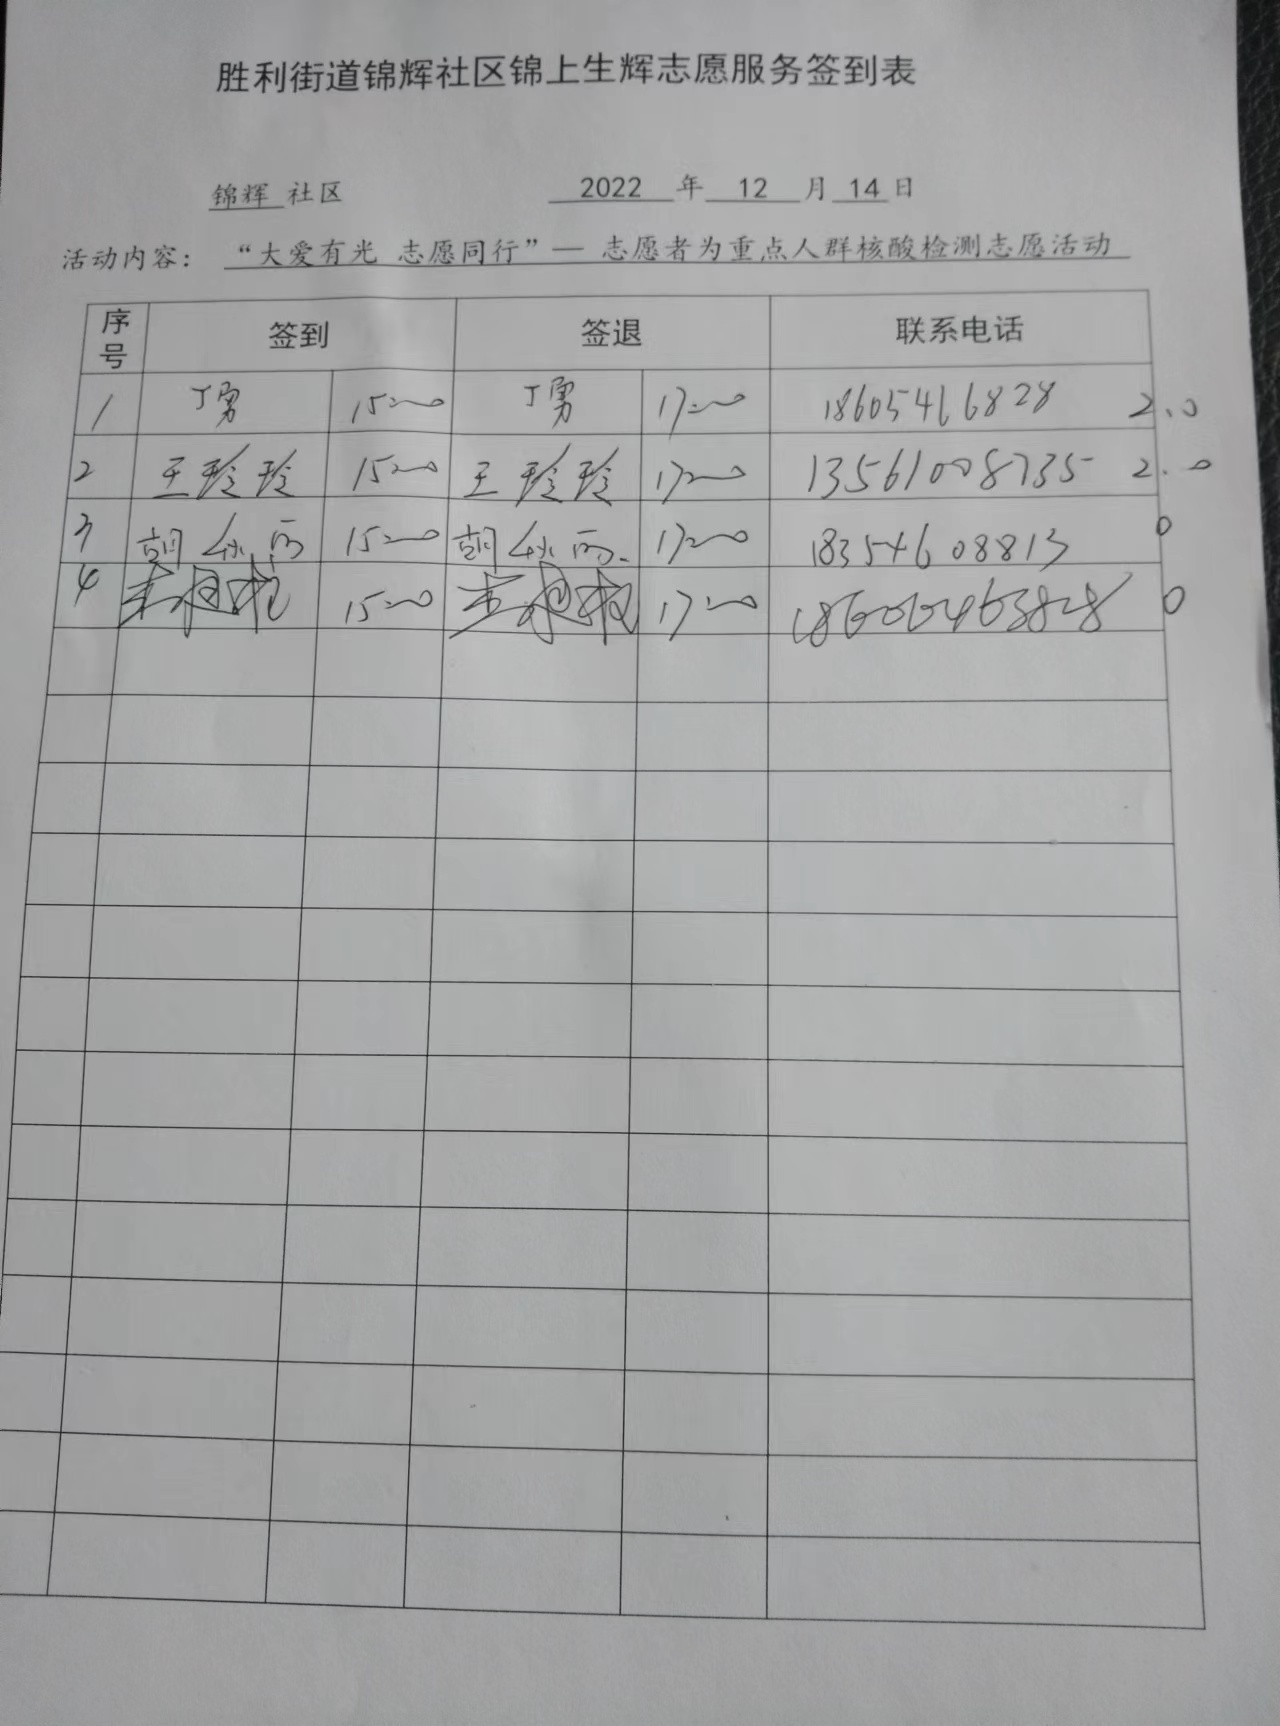 胜利街道锦辉社区锦上生辉志愿服务签到表
锦辉 社区 2022 年 12 月 14 日
活动内容： “大爱有光 志愿同行”— 志愿者为重点人群核酸检测志愿活动
序号 签到 签退 联系电话
1 丁勇 15:00 丁勇 17:00 18605466828 2.0
2 王玲玲 15:00 王玲玲 17:00 13561008735 2.0
3 15:00 17:00 18354608813 0
4 15:00 17:00 0